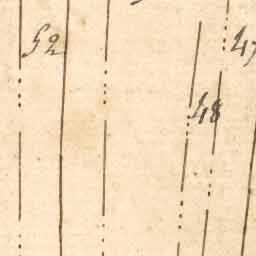 52
47
48